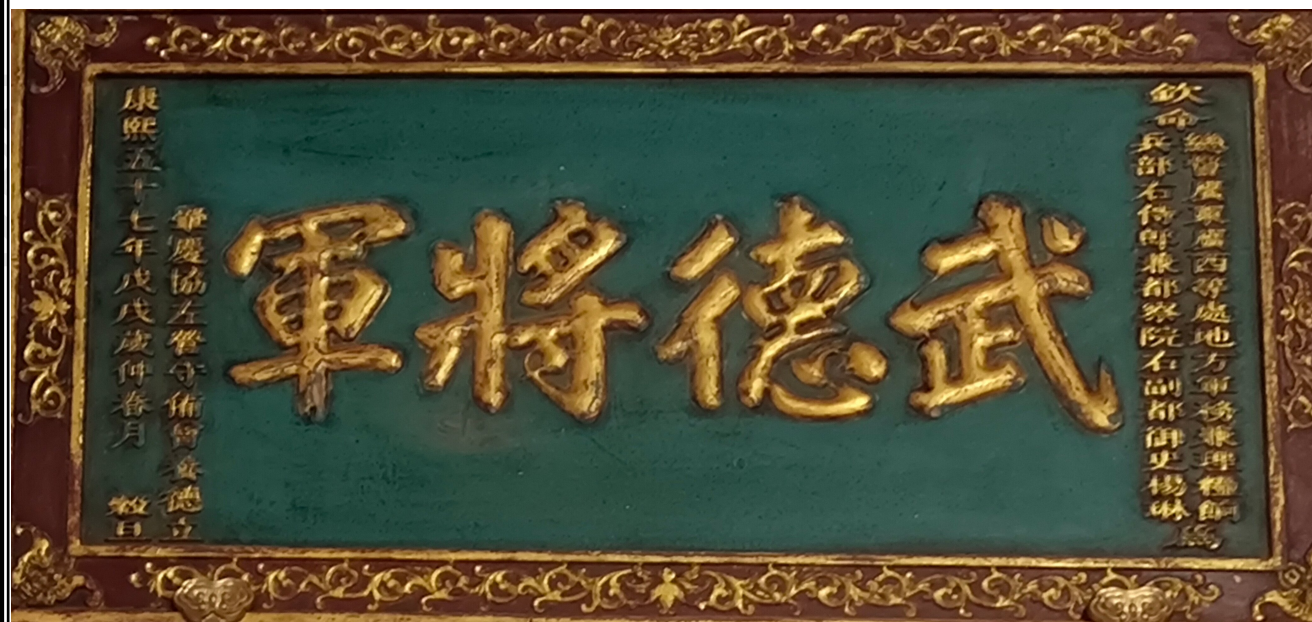 欽命
總督廣東廣西等處地方軍務兼理糧餉
兵部右侍郎兼都察院右副都御史楊琳
為
武德將軍
肇慶協左營守備曾德立
康熙五十七年戊戌歲仲春月 穀旦